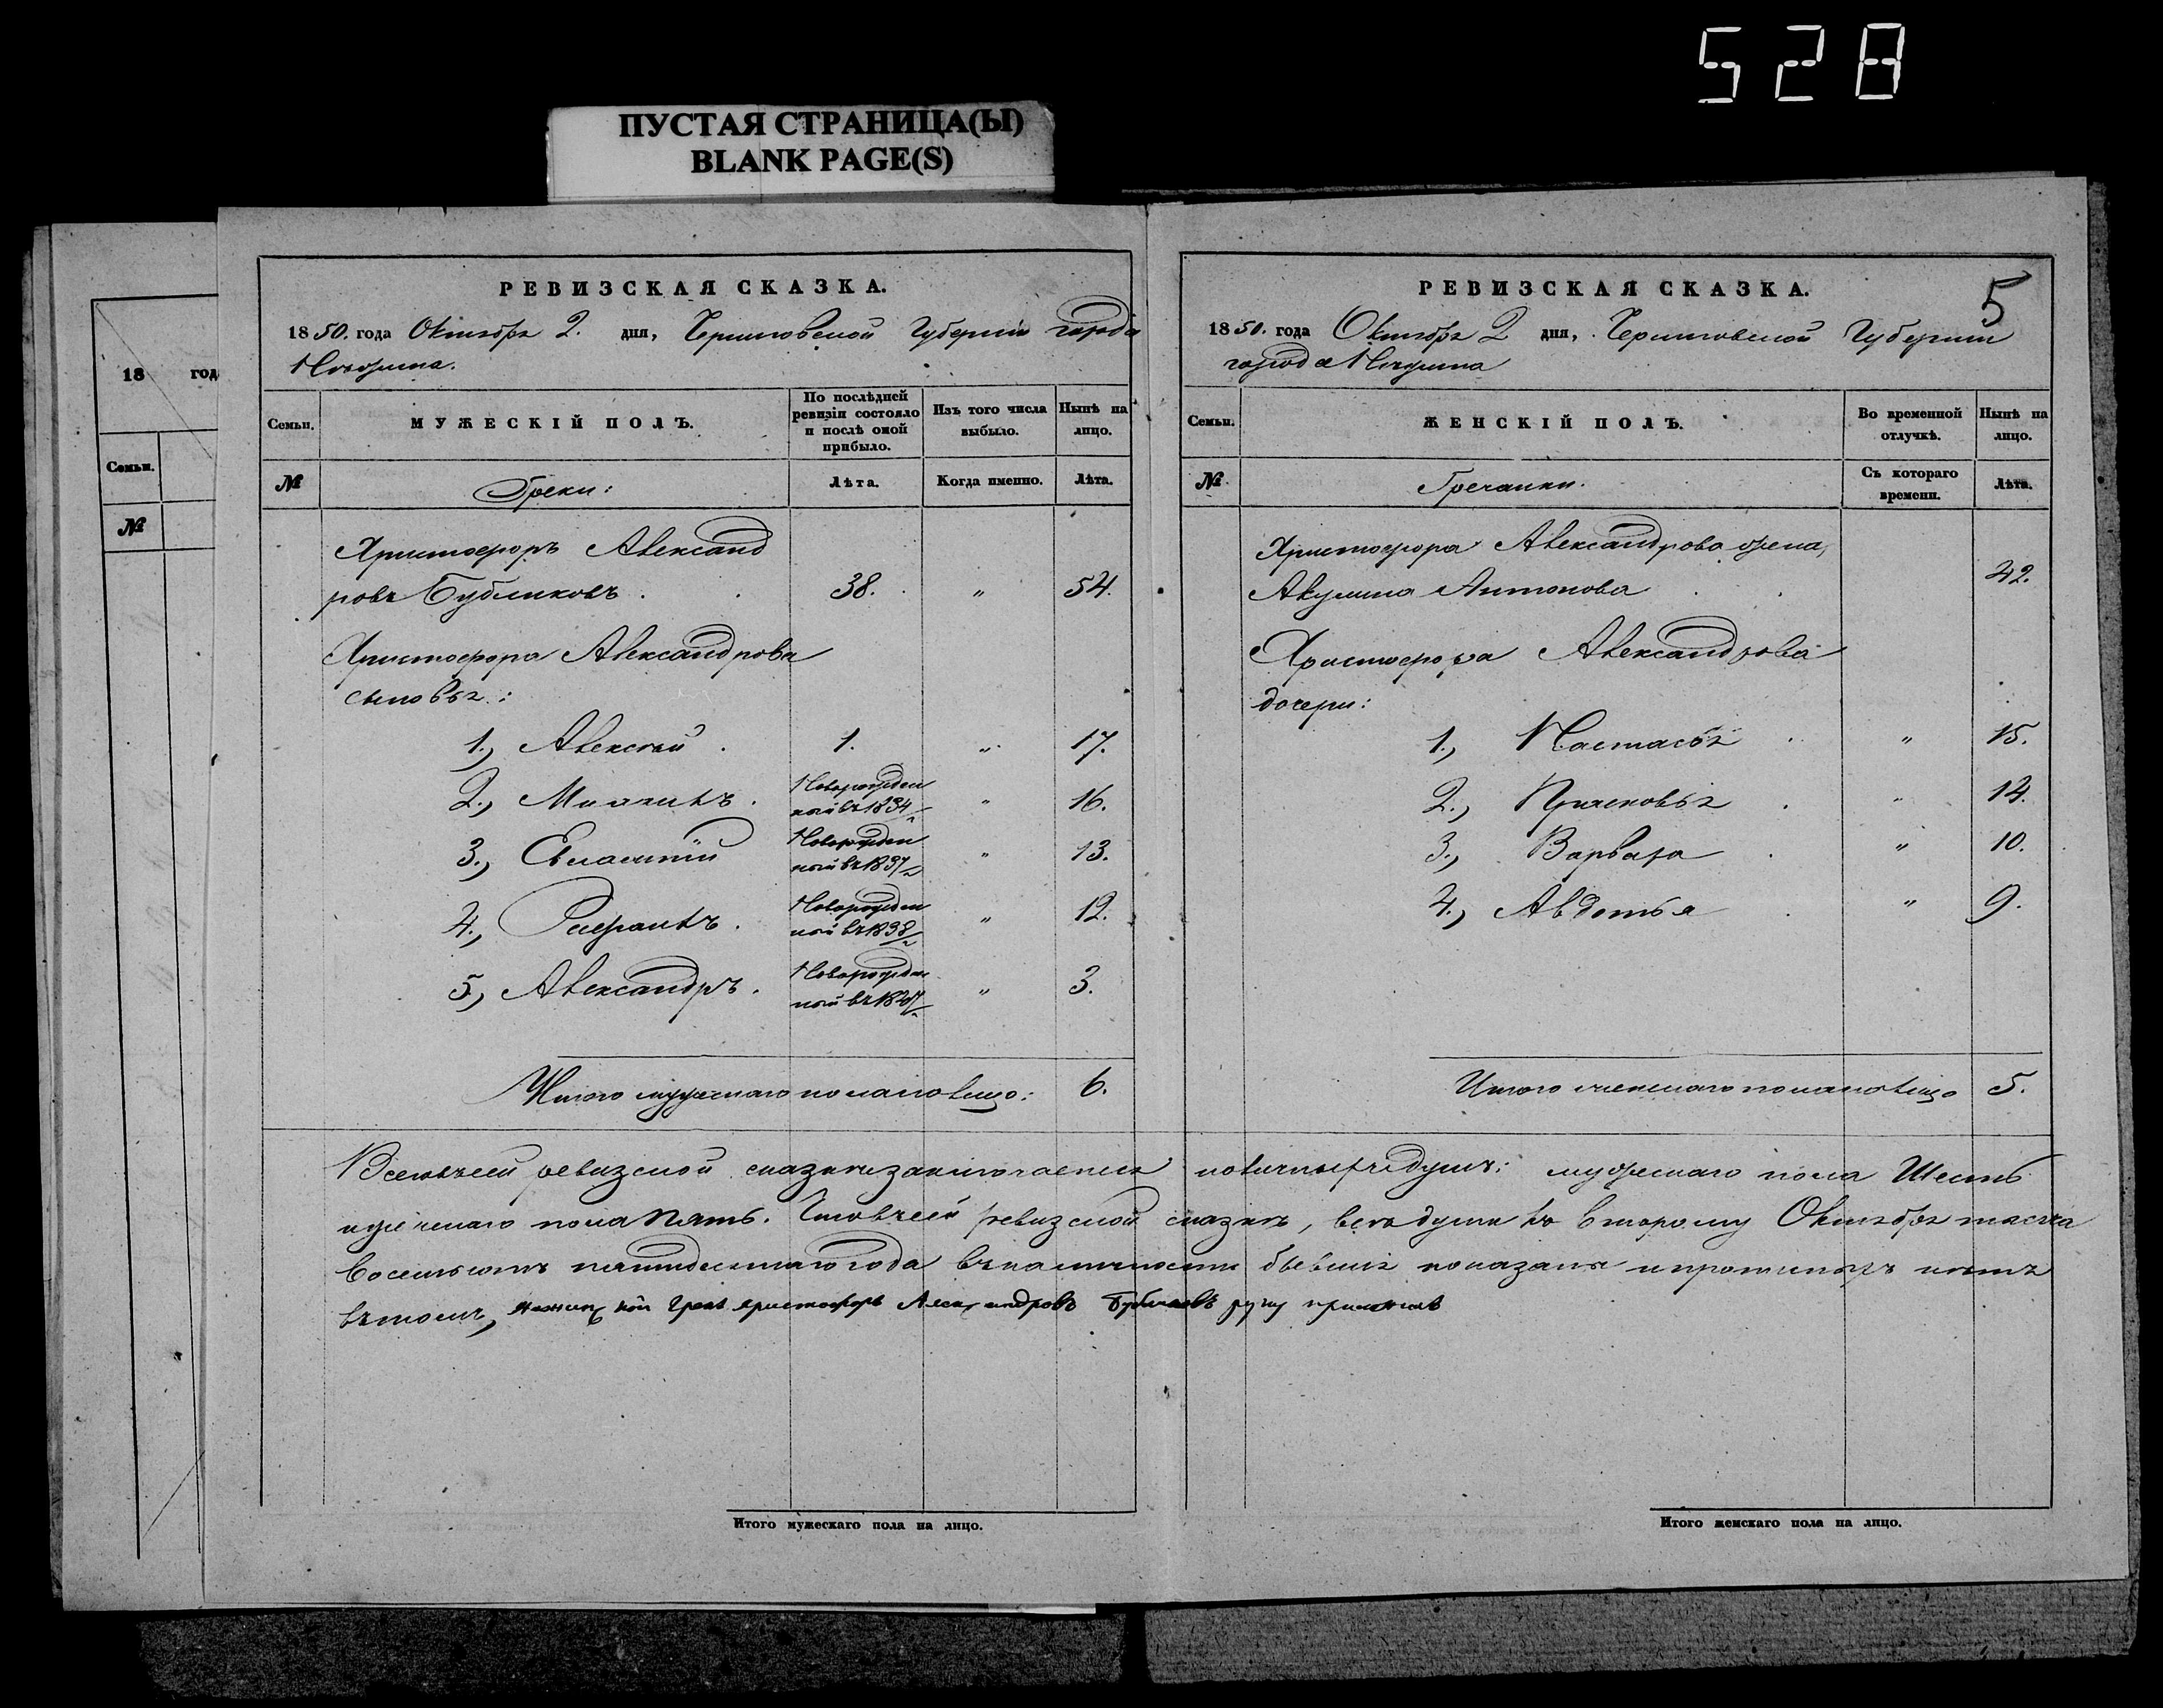 528
ПУСТАЯ СТРАНИЦА(Ы)
BLANK PAGE(S)
18 год
Семьи.
№
РЕВИЗСКАЯ СКАЗКА.
1850. года Октября 2. дня, Черниговской Губерніи города
Нѣжина.
Семьи.
МУЖЕСКІЙ ПОЛЪ.
По послѣдней ревизіи состояло и послѣ оной прибыло.
Изъ того числа выбыло.
Нынѣ на лицо.
№
Греки:
Лѣта.
Когда именно.
Лѣта.
Христофоръ Александ
ровъ Бубликовъ. 38. " 54.
Христофора Александрова
сыновья:
1., Алексѣй. 1. " 17.
2., Михаилъ. Новорожден
ный въ 1834/ " 16.
3., Евлампій Новорожден
ный въ 1837/ " 13.
4., Новорожден
ный въ 1838/ " 12.
5., Александръ. Новорожден
ный въ 1847/ " 3.
Итого мужескаго пола налицо: 6.
РЕВИЗСКАЯ СКАЗКА.
5
1850. года Октября 2 дня, Черниговской Губерніи
города Нѣжина
Семьи.
ЖЕНСКІЙ ПОЛЪ.
Во временной отлучкѣ.
Нынѣ на лицо.
№
Гречанки.
Съ котораго времени.
Лѣта.
Христофора Александрова жена,
Акулина Антонова 42.
Христофора Александрова
дочери:
1., Настасья " 15.
2., " 14.
3., Варвара " 10.
4., Авдотья " 9.
Итого женскаго пола налицо 5.
Всего въ сей ревизской сказкѣ заключается наличныхъ душъ: мужескаго пола Шесть
и женскаго пола Пять. Что въ сей ревизской сказкѣ, всѣ души ко второму Октября мѣсяца
восемьсотъ пятидесятаго года въ наличности бывшія показаны и прописныхъ нѣтъ
въ томъ, грекъ Христофоръ Александровъ Бубликовъ руку приложилъ
Итого мужескаго пола на лицо.
Итого женскаго пола на лицо.